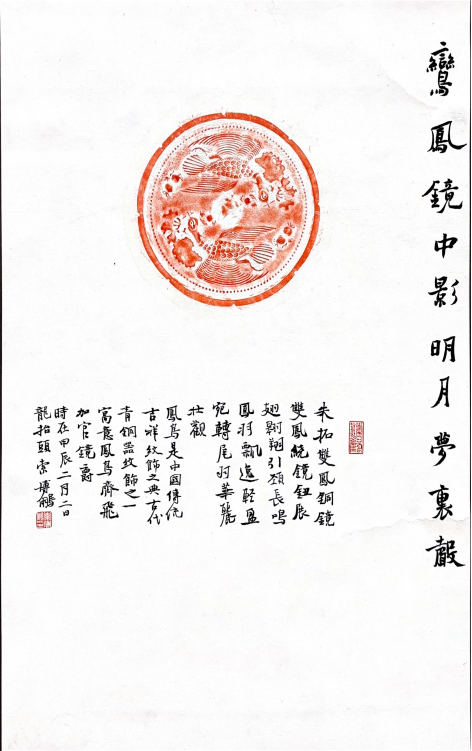 鸞鳳鏡中影明月夢裏聲
朱拓雙鳳銅鏡
雙鳳繞鏡鈕展
翅翱翔引頸長鳴
鳳羽飄逸輕盈
宛轉尾羽華麗
壯觀
鳳鳥是中國傳統
吉祥紋飾之典古代
青銅器紋飾之一
寓意鳳鳥齊飛
加官鏡爵
時在甲辰二月二日
龍抬頭